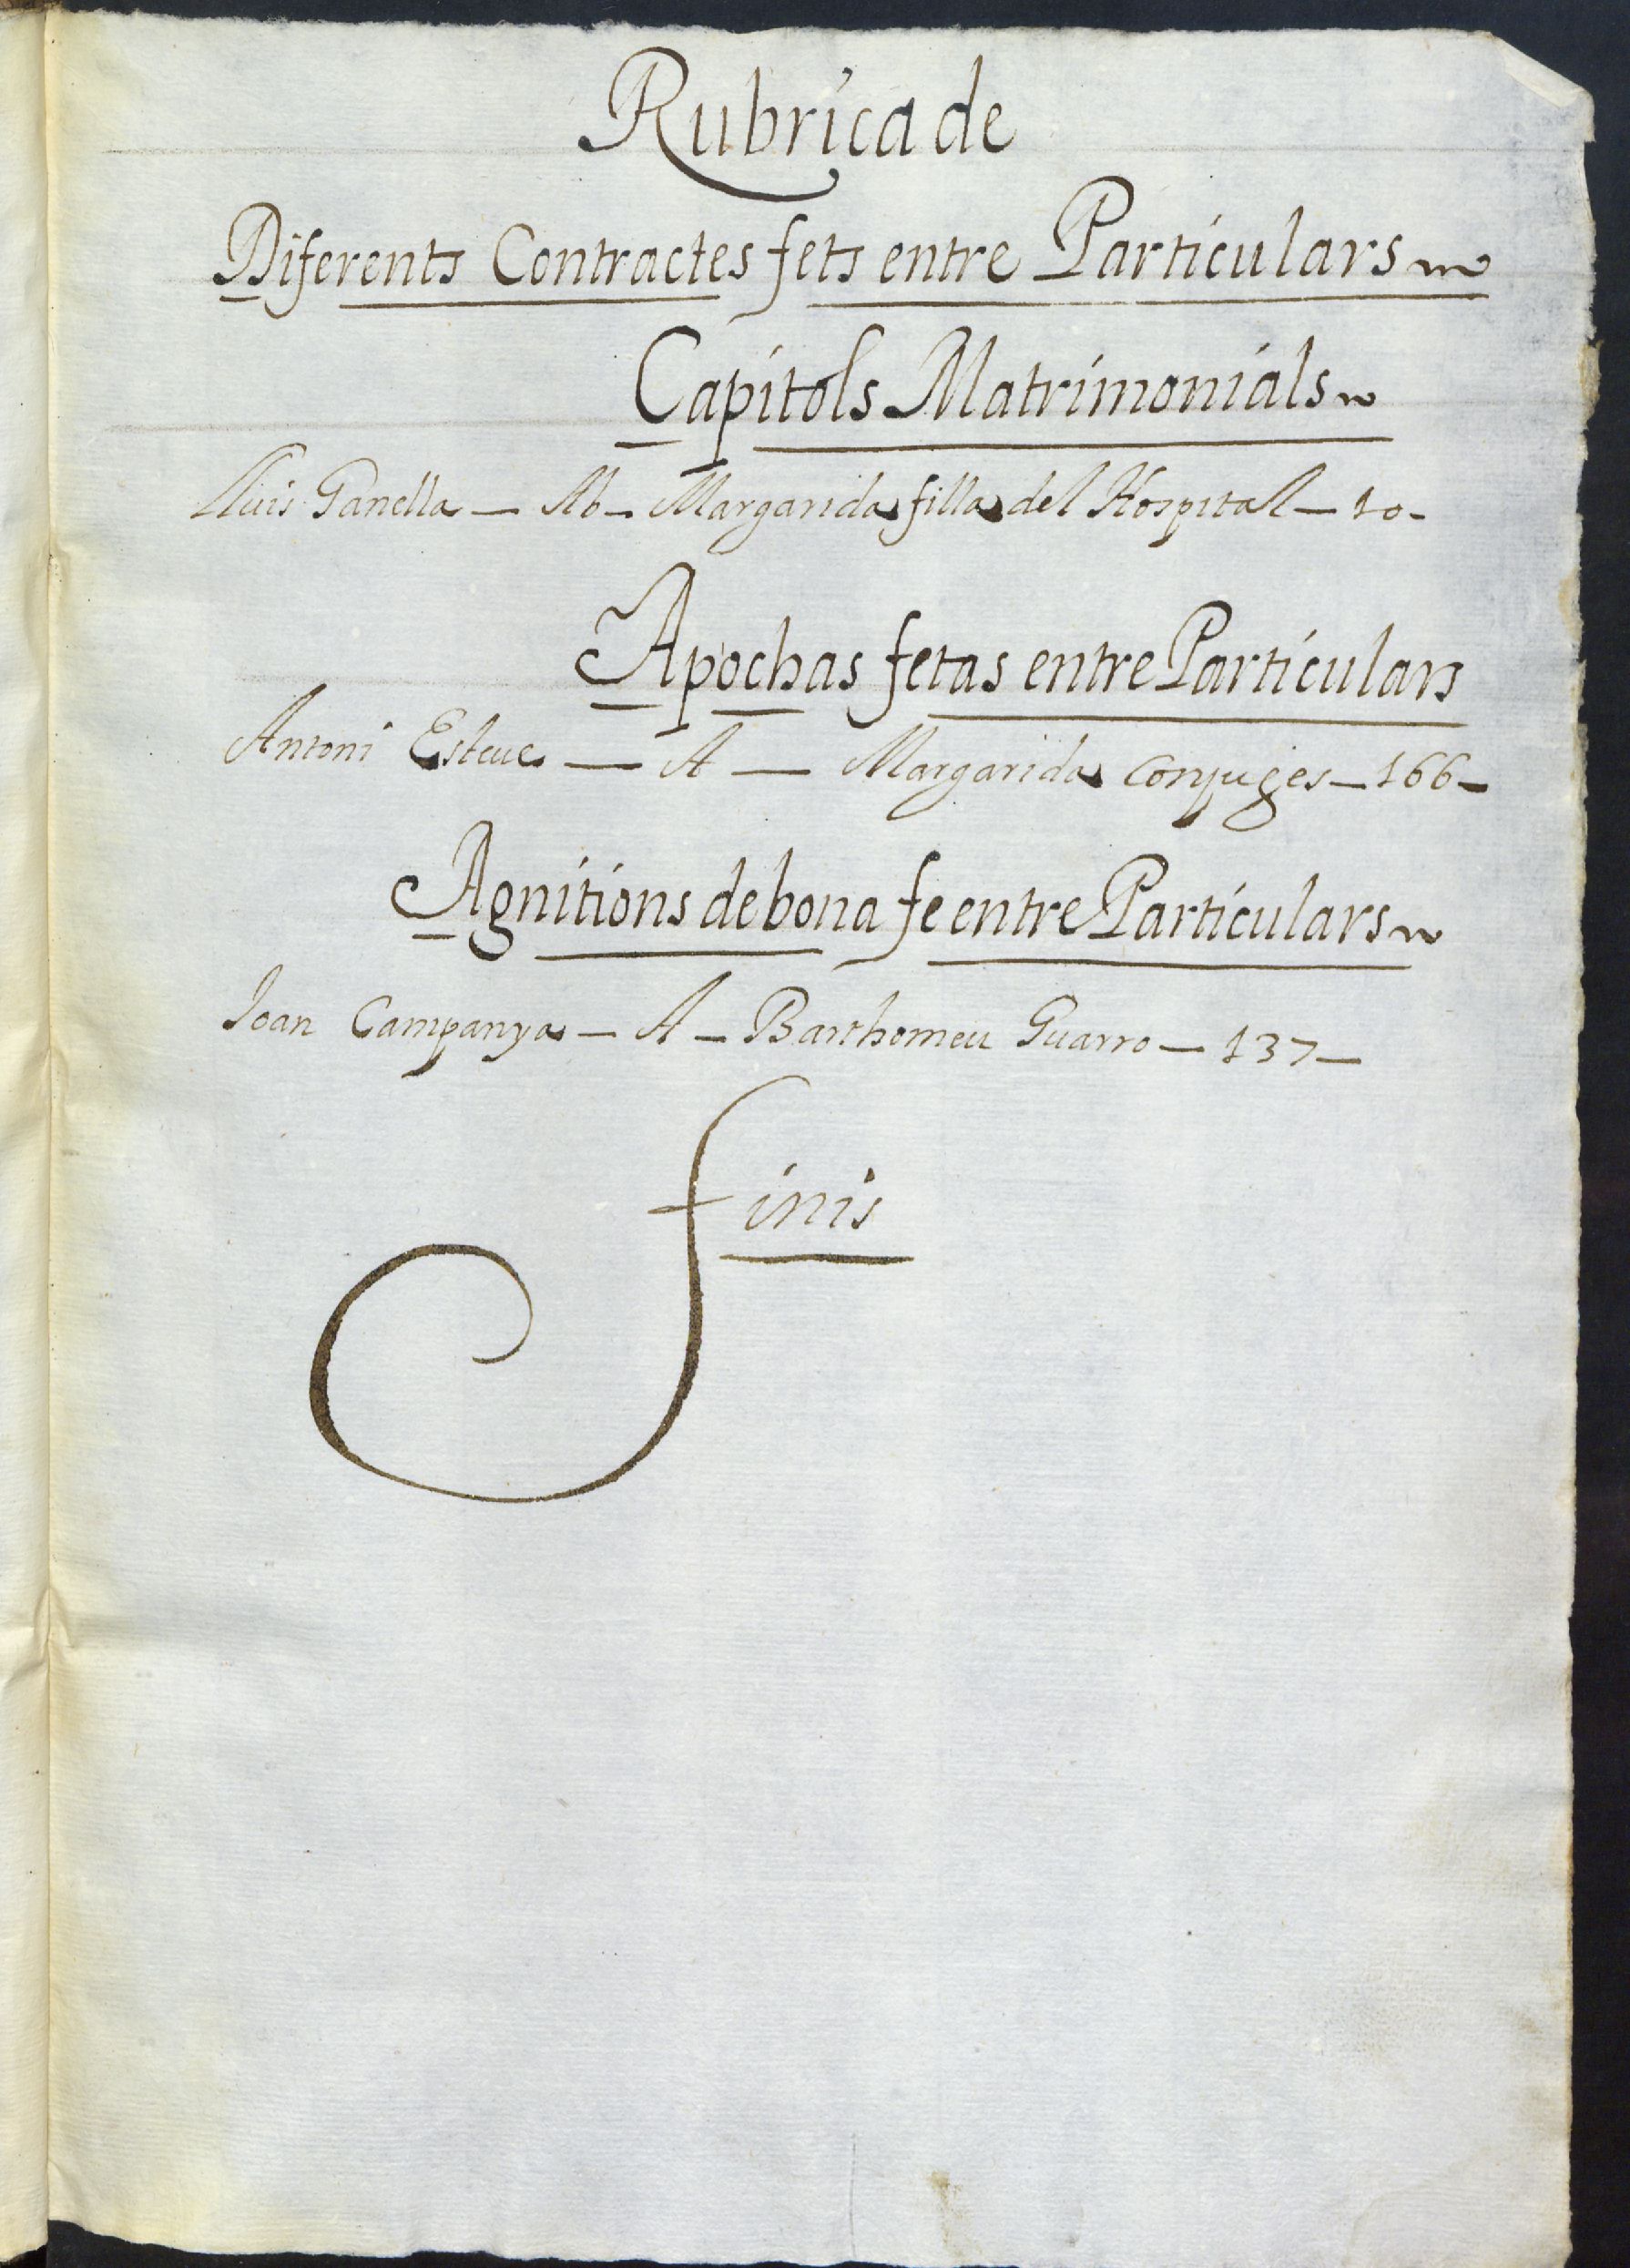 Rubrica de
Diferents Contractes fets entre Particulars
Capitols Matrimonials
Lluis Ganella — Ab — Margarida filla del Hospital — 10 —
Apochas fetas entre Particulars
Antoni Esteve — A — Margarida Conjuges — 166 —
Agnitions de bona fe entre Particulars
Joan Campanya — A — Barthomeu Guarro — 137 —
finis